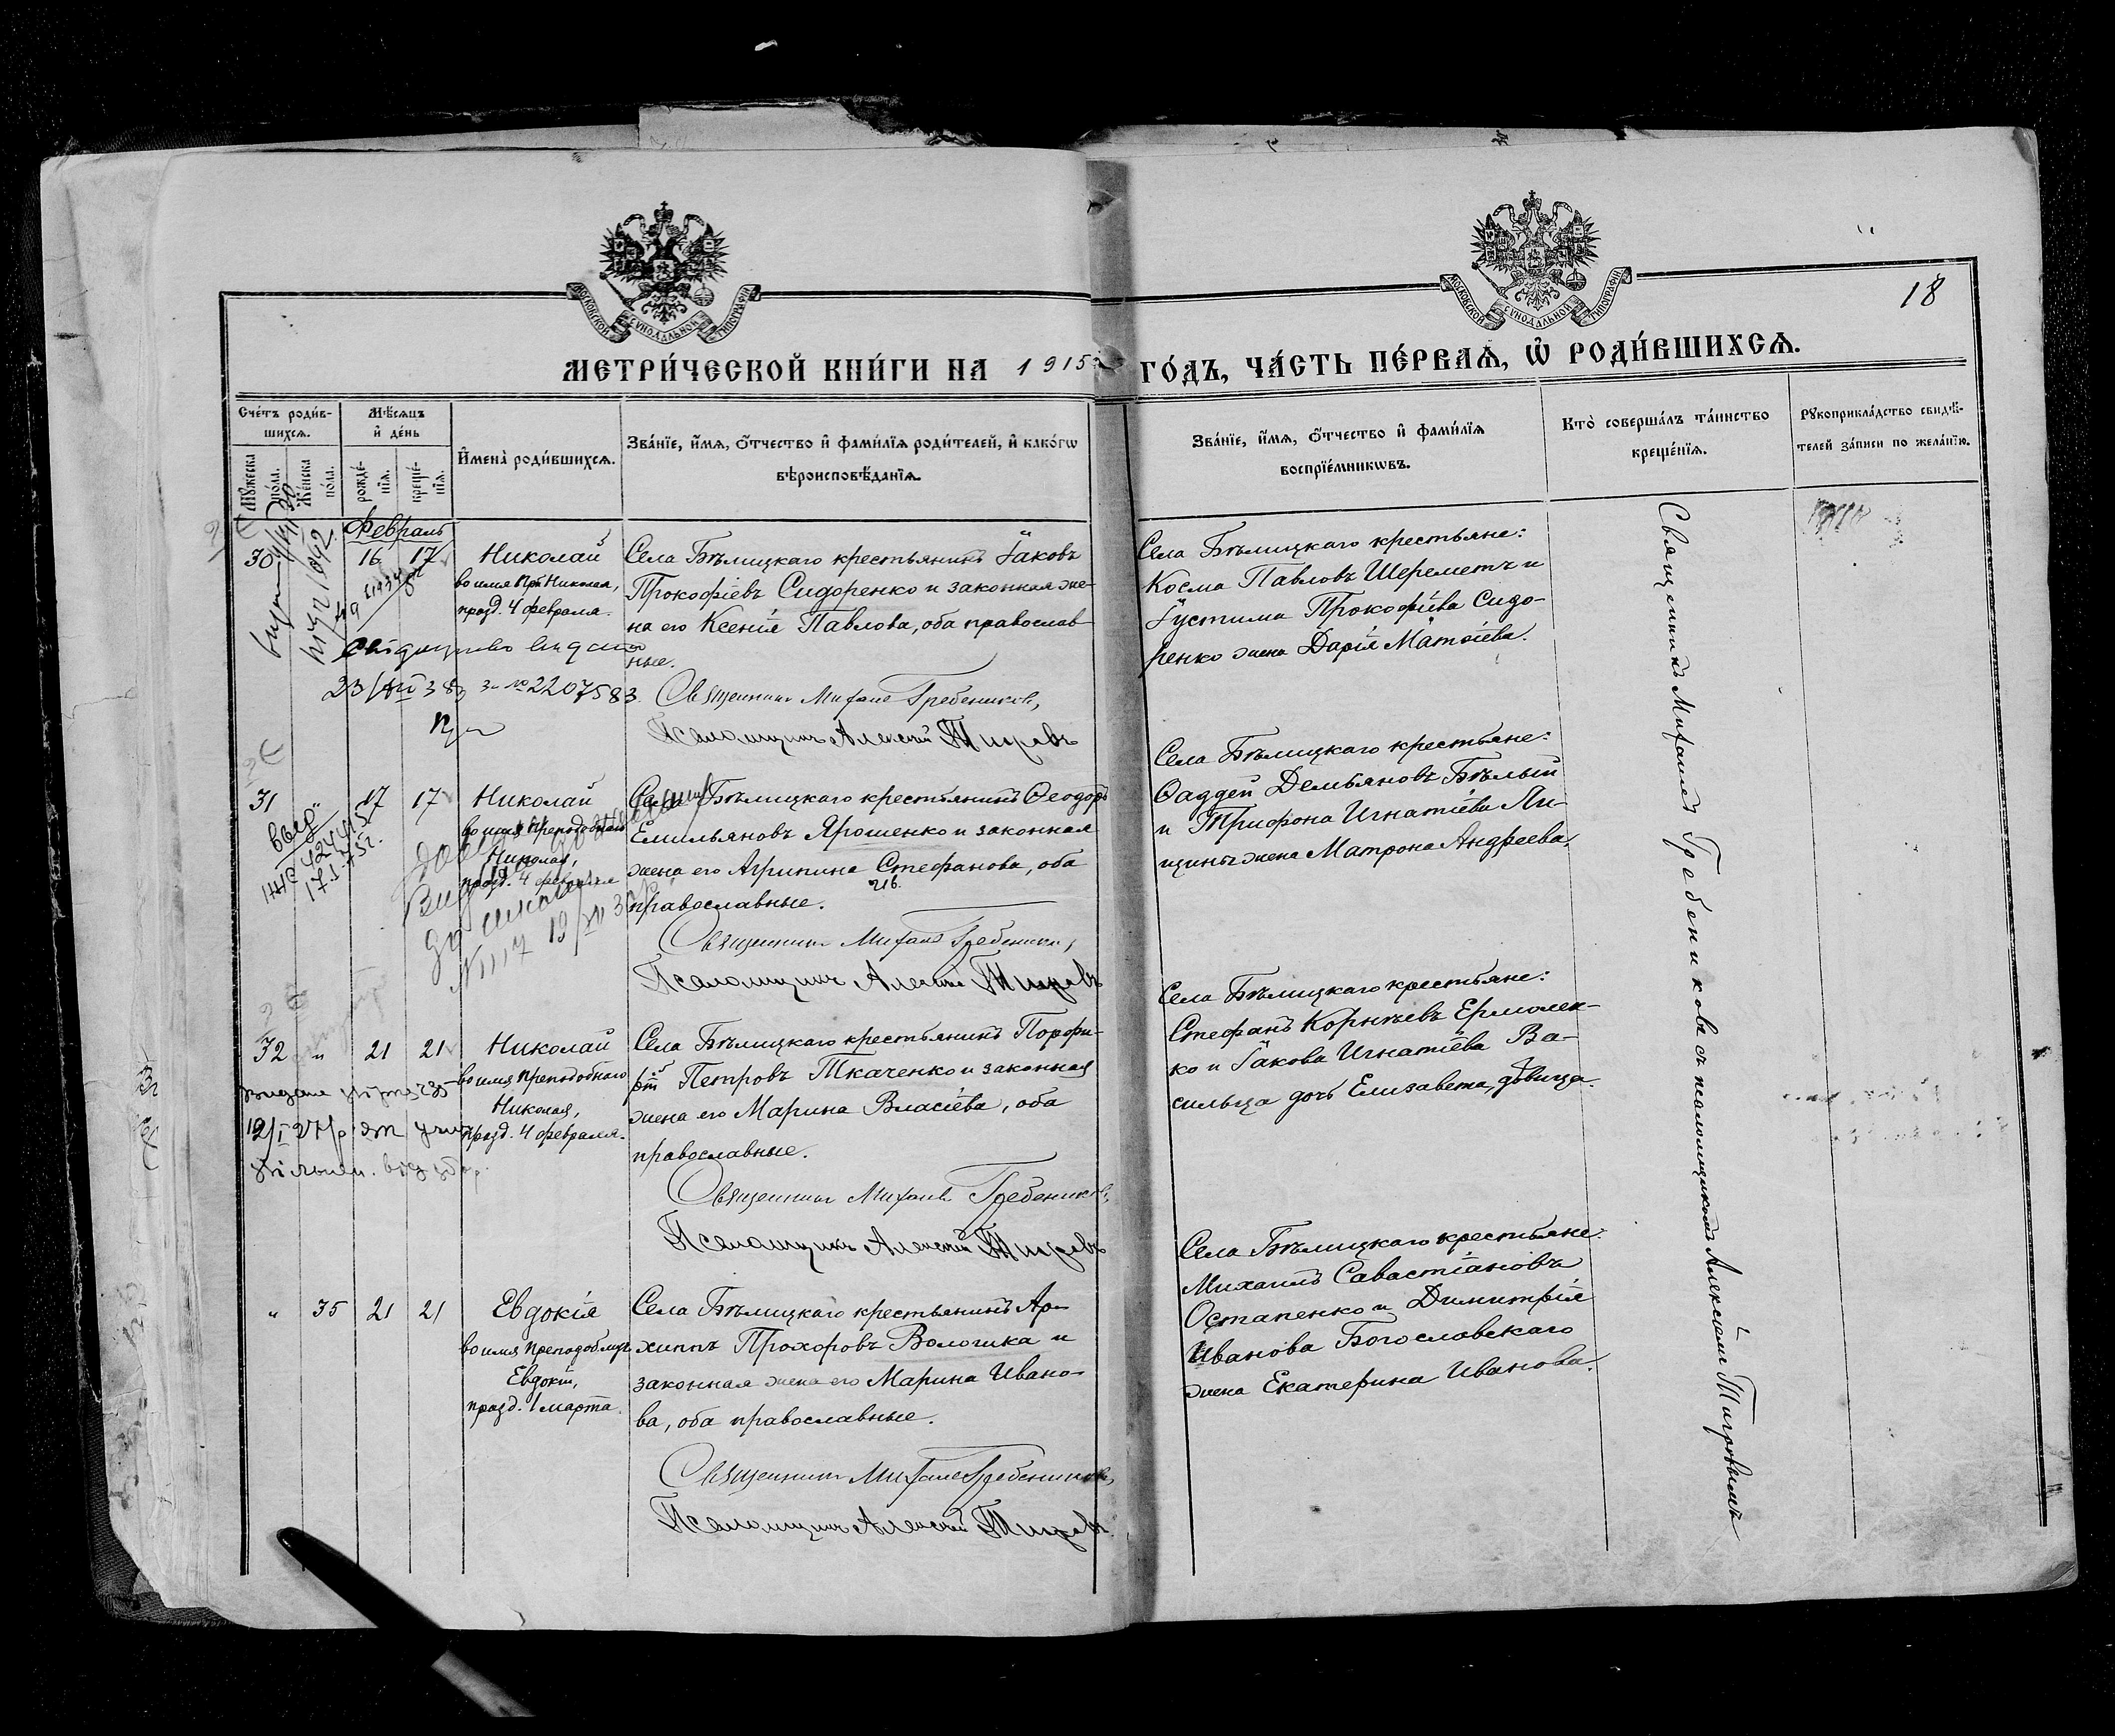 МОСКОВСКОЙ СУНОДАЛЬНОЙ ТИПОГРАФІИ
МОСКОВСКОЙ СУНОДАЛЬНОЙ ТИПОГРАФІИ
18
МЕТРИ́ЧЕСКОЙ КНИ́ГИ НА 1915 ГО́ДЪ, ЧА́СТЬ ПЕ́РВАѦ, Ѡ҆ РОДИ́ВШИХСѦ.
Сче́тъ роди́в-
шихсѧ.
Мꙋжеска по́ла.
Же́нска по́ла.
Мѣ́сѧцъ
и҆ де́нь
рожде́-
нїѧ.
креще́-
нїѧ.
И҆мена̀ роди́вшихсѧ.
Зва́нїе, и҆́мѧ, ѻ҆́тчество и҆ фами́лїѧ роди́телей, и҆ како́гѡ
вѣроисповѣ́данїѧ.
Зва́нїе, и҆́мѧ, ѻ҆́тчество и҆ фами́лїѧ
воспрїе́мникѡвъ.
Кто̀ соверша́лъ та́инство
креще́нїѧ.
Рꙋкоприкла́дство свидѣ́-
телей за́писи по жела́нїю.
Февраль
30 16 17
Николай
во имя Прп. Николая,
празд. 4 февраля.
Села Бѣлицкаго крестьянинъ Іаковъ
Прокофіевъ Сидоренко и законная же-
на его Ксенія Павлова, оба православ-
ные.
Священникъ Михаилъ Гребениковъ,
Псаломщикъ Алексѣй Тигровъ
Села Бѣлицкаго крестьяне:
Косма Павловъ Шереметъ и
Іустима Прокофіева Сидо-
ренко жена Дарія Матѳіева.
23/VII 38 за № 2207583
31 17 17
Николай
во имя Преподобнаго
Николая,
празд. 4 февраля
Села Бѣлицкаго крестьянинъ Ѳеодоръ
Емильяновъ Ярошенко и законная
жена его Агрипина Стефанова, оба
православные.
Священникъ Михаилъ Гребениковъ,
Псаломщикъ Алексѣй Тигровъ
Села Бѣлицкаго крестьяне:
Ѳаддей Демьяновъ Бѣлый
и Трифона Игнатіева Ли-
щины жена Матрона Андреева.
32 " 21 21
Николай
во имя Преподобнаго
Николая,
празд. 4 февраля.
Села Бѣлицкаго крестьянинъ Порфи-
рій Петровъ Ткаченко и законная
жена его Марина Власіева, оба
православные.
Священникъ Михаилъ Гребениковъ,
Псаломщикъ Алексѣй Тигровъ
Села Бѣлицкаго крестьяне:
Стефанъ Корнѣевъ Ермолен-
ко и Іакова Игнатіева Ва-
сильца дочь Елизавета, дѣвица.
" 35 21 21
Евдокія
во имя Преподобмуч.
Евдокіи,
празд. 1 марта.
Села Бѣлицкаго крестьянинъ Ар-
хиппъ Прохоровъ Вологика и
законная жена его Марина Ивано-
ва, оба православные.
Священникъ Михаилъ Гребениковъ,
Псаломщикъ Алексѣй Тигровъ
Села Бѣлицкаго крестьяне:
Михаилъ Савастіановъ
Остапенко и Димитрія
Иванова Богословскаго
жена Екатерина Иванова.
Священникъ Михаилъ Гребениковъ съ псаломщикомъ Алексѣемъ Тигровымъ